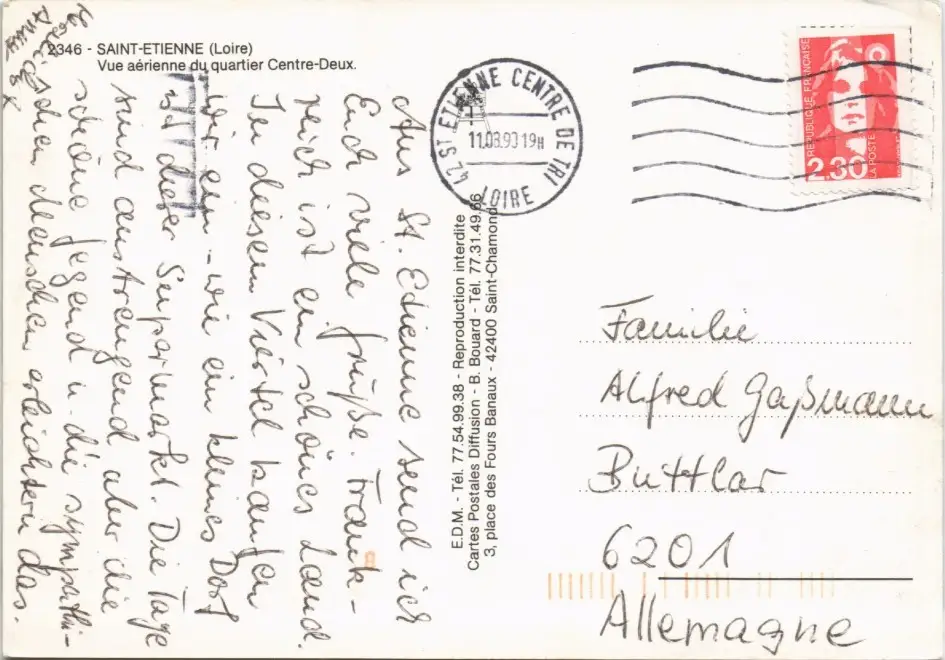 2346 - SAINT-ETIENNE (Loire)
Vue aérienne du quartier Centre-Deux.
Aus St. Etienne send ich
Euch viele Grüße. Frank-
reich ist ein schönes Land.
In diesem Viertel kaufen
wir ein - wie ein kleines Dorf
ist dieser Supermarkt. Die Tage
sind anstrengend, aber die
schöne Gegend u. die sympathi-
schen Menschen erleichtern das.
E.D.M. - Tél. 77.54.99.38 - Reproduction interdite
Cartes Postales Diffusion - B. Bouard - Tél. 77.31.49.66
3, place des Fours Banaux - 42400 Saint-Chamond
42 ST ETIENNE CENTRE DE TRI
11.03.93 19H
LOIRE
RÉPUBLIQUE FRANÇAISE
2.30
LA POSTE
Familie
Alfred Gaßmann
Buttlar
6201
Allemagne